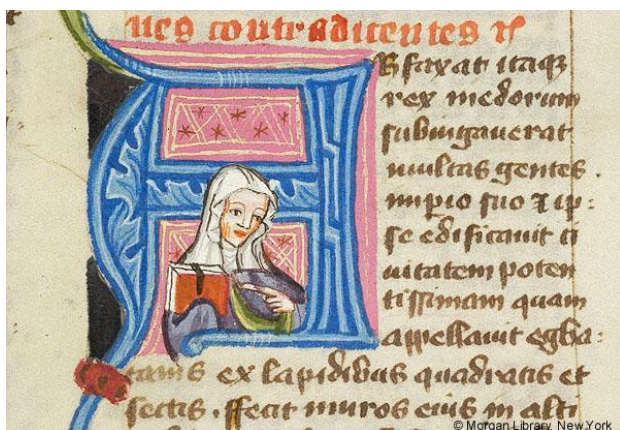 ues contradicentes
Arfaxat itaqꝫ
rex medorum
subiugauerat
multas gentes .
impio suo ⁊ ip:
se edificauit ci
uitatem poten
tissimam quam
appellauit egba:
tanis ex lapidibus quadratis et
sectis . ffecit muros eius in alti
© Morgan Library, New York